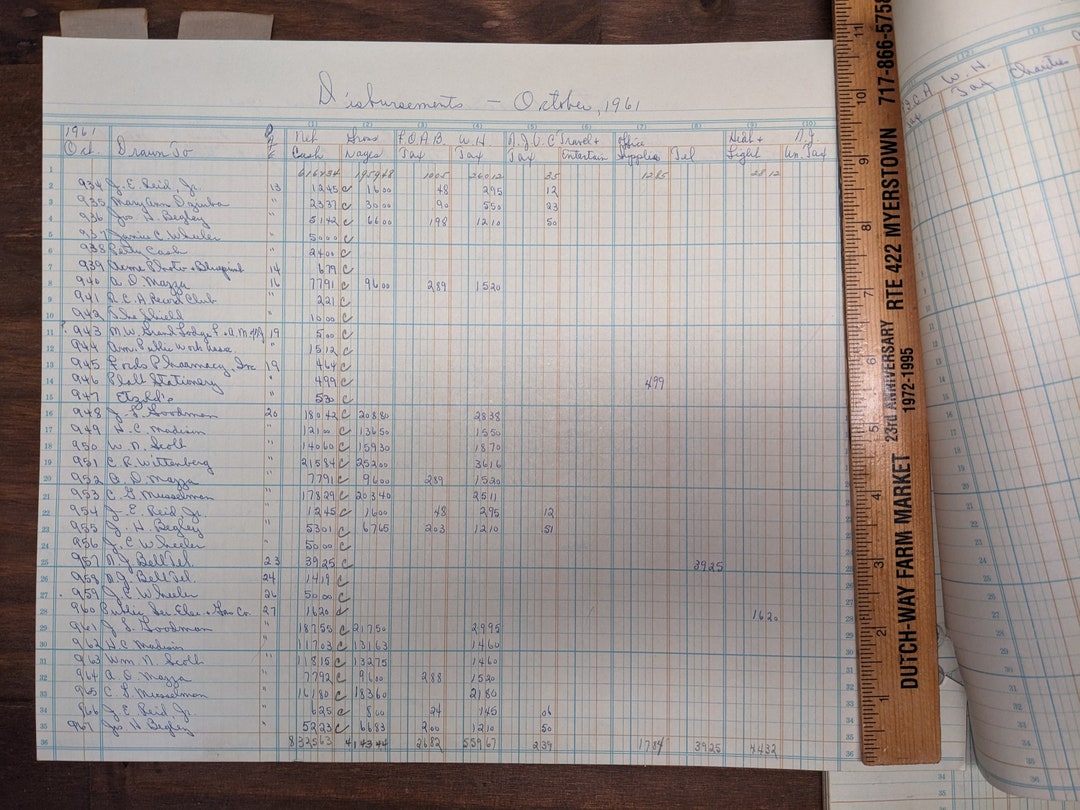 Disbursements - October, 1961
(1) (2) (3) (4) (5) (6) (7) (8) (9) (10)
1961 Net Gross F.O.A.B. W.H. N.J.U.C Travel + Office Heat + N.J.
Oct. Drawn To Cash Wages Tax Tax Tax Entertain Supplies Tel Light Un. Tax
1 616434 195948 1005 26012 35 1285 2812
2 934 J. E. Reid, Jr. 13 1245 c 1600 48 295 12
3 935 Mary Ann Dziuba " 2337 c 3000 90 550 23
4 936 Jos. H. Begley " 5142 c 6600 198 1210 50
5 937 Janice C. Wheeler " 5000 c
6 938 Petty Cash " 2400 c
7 939 Acme Photo + Blueprint 14 679 c
8 940 A. D. Mazza 16 7791 c 9600 289 1520
9 941 R.C.A. Record Club " 221 c
10 942 The Shield " 1000 c
11 943 M.W. Grand Lodge F. + A.M. 19 500 c
12 944 Am. Public Work Assoc. " 1512 c
13 945 Fords Pharmacy, Inc 19 464 c
14 946 Plall Stationery " 499 c 499
15 947 Etzold's " 530 c
16 948 J. L. Goodman 20 18042 c 20880 2838
17 949 H. C. Madison " 12100 c 13650 1550
18 950 W. N. Scott " 14060 c 15930 1870
19 951 C. R. Wittenberg " 21584 c 25200 3616
20 952 A. D. Mazza " 7791 c 9600 289 1520
21 953 C. G. Musselman " 17829 c 20340 2511
22 954 J. E. Reid Jr. " 1245 c 1600 48 295 12
23 955 J. H. Begley " 5301 c 6765 203 1210 51
24 956 J. C. Wheeler " 5000 c
25 957 N. J. Bell Tel 23 3925 c 3925
26 958 N. J. Bell Tel 24 1419 c
27 959 J. C. Wheeler 26 5000 c
28 960 Public Ser Elec. + Gas Co. 27 1620 c 1620
29 961 J. L. Goodman " 18755 c 21750 2995
30 962 H. C. Madison " 11703 c 13163 1460
31 963 Wm. N. Scott " 11815 c 13275 1460
32 964 A. D. Mazza " 7792 c 9600 288 1520
33 965 C. G. Musselman " 16180 c 18360 2180
34 966 J. E. Reid Jr. " 625 c 800 24 145 06
35 967 Jos H Begley " 5223 c 6683 200 1210 50
36 832563 414344 2682 55967 239 1784 3925 4432
DUTCH-WAY FARM MARKET 23rd ANNIVERSARY RTE 422 MYERSTOWN 717-866-575
1972-1995
2 3 4 5 6 7 8 9 10 11
W. H. Charter
Tax Tax